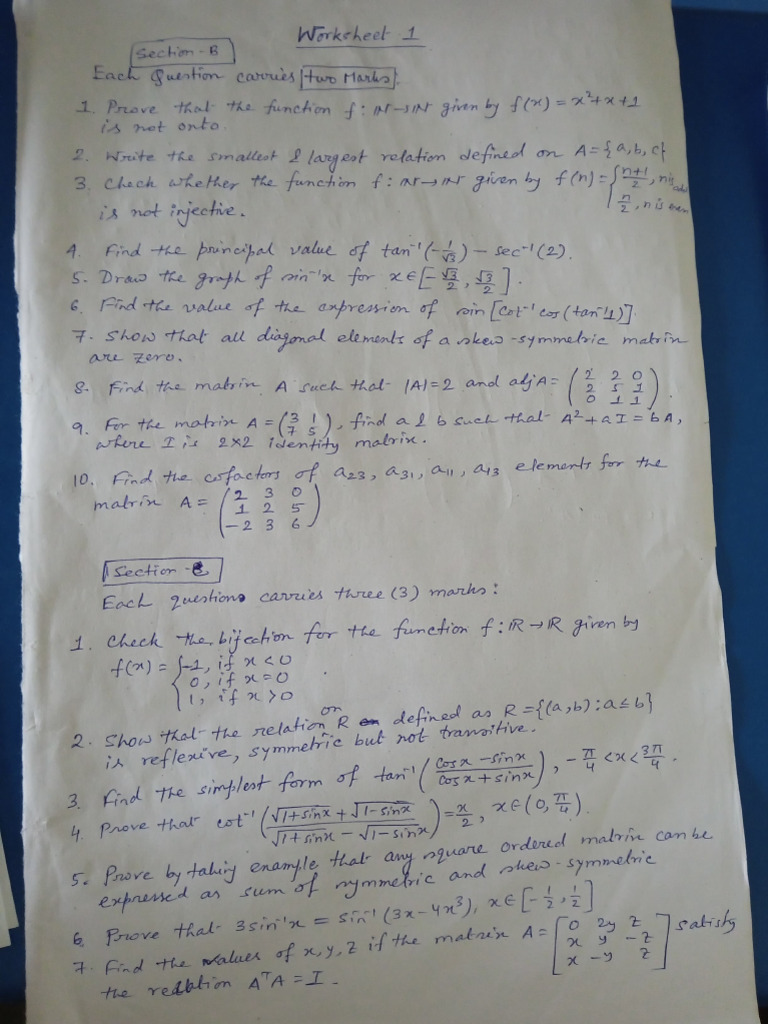 Worksheet 1
Section - B
Each Question carries two Marks.
1. Prove that the function f : ℕ→ℕ given by f(x) = x²+x+1
is not onto.
2. Write the smallest & largest relation defined on A={a,b,c}
3. Check whether the function f : ℕ→ℕ given by f(n) = { (n+1)/2, n is odd
n/2, n is even
is not injective.
4. Find the principal value of tan⁻¹(-1/√3) - sec⁻¹(2).
5. Draw the graph of sin⁻¹x for x∈[-√3/2, √3/2].
6. Find the value of the expression of sin[cot⁻¹ cos(tan⁻¹1)]
7. Show that all diagonal elements of a skew-symmetric matrix
are zero.
8. Find the matrix A such that |A|=2 and adj A = (2 2 0
2 5 1
0 1 1).
9. For the matrix A = (3 1
7 5), find a & b such that A²+aI = bA,
where I is 2×2 identity matrix.
10. Find the cofactors of a₂₃, a₃₁, a₁₁, a₁₃ elements for the
matrix A = (2 3 0
1 2 5
-2 3 6)
Section - C
Each questions carries three (3) marks:
1. Check the bijection for the function f : ℝ→ℝ given by
f(x) = { -1, if x<0
0, if x=0
1, if x>0
2. Show that the relation R on defined as R={(a,b) : a≤b}
is reflexive, symmetric but not transitive.
3. Find the simplest form of tan⁻¹((cosx - sinx)/(cosx + sinx)), -π/4 <x< 3π/4.
4. Prove that cot⁻¹((√1+sinx + √1-sinx)/(√1+sinx - √1-sinx)) = x/2, x∈(0, π/4).
5. Prove by taking example that any square ordered matrix can be
expressed as sum of symmetric and skew-symmetric
6. Prove that 3sin⁻¹x = sin⁻¹(3x-4x³), x∈[-1/2, 1/2]
7. Find the values of x,y,z if the matrix A = [0 2y z
x y -z
x -y z] satisfy
the relation AᵀA = I.